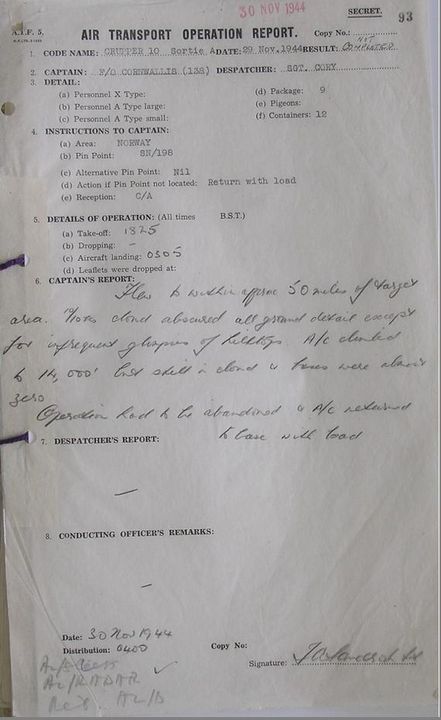 30 NOV 1944
SECRET.
93
A.I.F. 5.
AIR TRANSPORT OPERATION REPORT.
Copy No.:
1. CODE NAME: CRUPPER 10 Sortie A DATE: 29 Nov. 1944 RESULT: NOT COMPLETED
2. CAPTAIN: F/O CORNWALLIS (138) DESPATCHER: SGT. CORY
3. DETAIL:
(a) Personnel X Type:
(d) Package: 9
(b) Personnel A Type large:
(e) Pigeons:
(c) Personnel A Type small:
(f) Containers: 12
4. INSTRUCTIONS TO CAPTAIN:
(a) Area: NORWAY
(b) Pin Point: SN/198
(c) Alternative Pin Point: Nil
(d) Action if Pin Point not located: Return with load
(e) Reception: C/A
5. DETAILS OF OPERATION: (All times B.S.T.)
(a) Take-off: 1825
(b) Dropping: -
(c) Aircraft landing: 0305
(d) Leaflets were dropped at:
6. CAPTAIN'S REPORT:
Flew to within approx 50 miles of target
area. 10/10ths cloud obscured all ground detail except
for infrequent glimpses of hilltops. A/c climbed
to 14,000' but still in cloud & bases were almost
zero
Operation had to be abandoned & A/c returned
to base with load
7. DESPATCHER'S REPORT:
—
8. CONDUCTING OFFICER'S REMARKS:
-
Date: 30 Nov 1944
Distribution: 0400
Copy No:
Signature:
AL/RADAR
AL/D